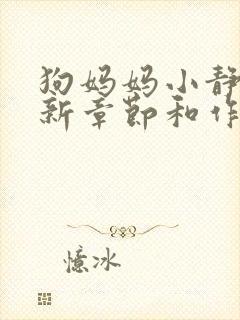 狗妈妈小静
新章节和作
憶冰